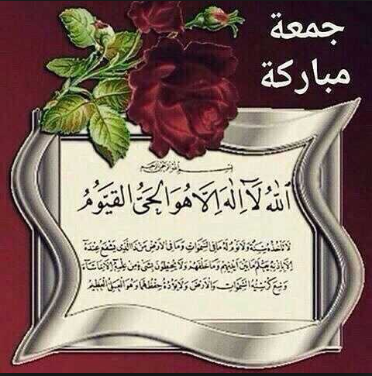 جمعة
مباركة
بسم الله الرحمن الرحيم
ٱللَّهُ لَآ إِلَٰهَ إِلَّا هُوَ ٱلْحَىُّ ٱلْقَيُّومُ
لَا تَأْخُذُهُ سِنَةٌ وَلَا نَوْمٌ لَهُ مَا فِي السَّمَوَاتِ وَمَا فِي الْأَرْضِ مَنْ ذَا الَّذِي يَشْفَعُ عِنْدَهُ
إِلَّا بِإِذْنِهِ يَعْلَمُ مَا بَيْنَ أَيْدِيهِمْ وَمَا خَلْفَهُمْ وَلَا يُحِيطُونَ بِشَيْءٍ مِنْ عِلْمِهِ إِلَّا بِمَا شَاءَ
وَسِعَ كُرْسِيُّهُ السَّمَوَاتِ وَالْأَرْضَ وَلَا يَؤُدُهُ حِفْظُهُمَا وَهُوَ الْعَلِيُّ الْعَظِيمُ